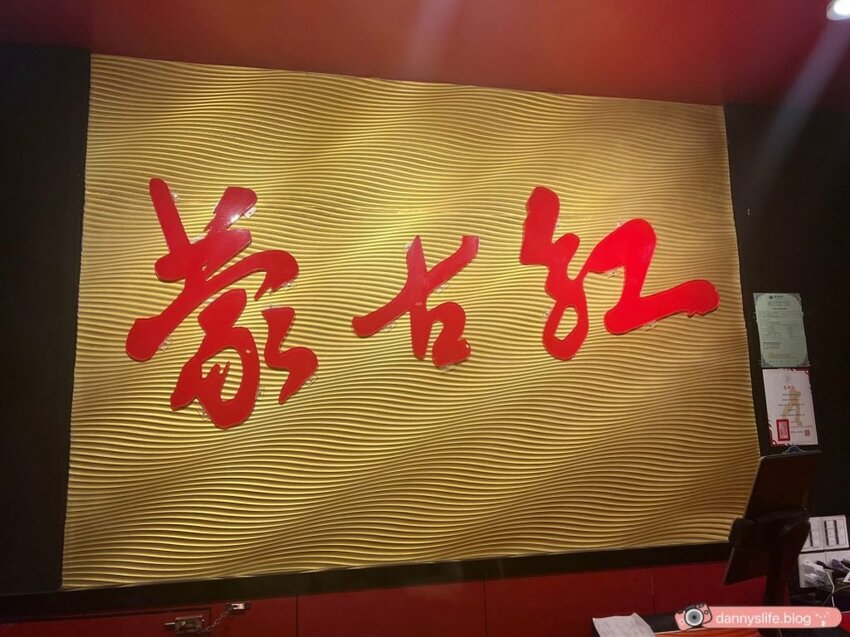 蒙古紅
dannyslife.blog